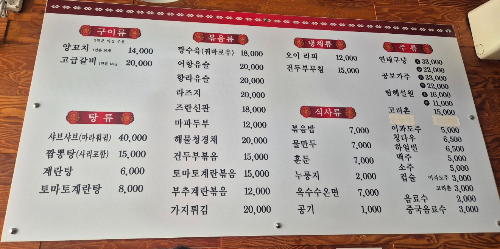 구이류
양꼬치 14,000
고급갈비 20,000
탕류
샤브샤브(마라훠궈) 40,000
짬뽕탕(사리포함) 15,000
계란탕 7,000
토마토계란탕 8,000
볶음류
탕수육(꿔바로우) 18,000
어향육슬 20,000
향라육슬 20,000
라즈지 20,000
즈란신판 18,000
마파두부 12,000
해물청경채 20,000
건두부볶음 15,000
토마토계란볶음 15,000
부추계란볶음 12,000
가지튀김 20,000
냉채류
오이 라피 12,000
건두부무침 15,000
식사류
볶음밥 7,000
물만두 7,000
훈둔 7,000
누룽지 2,000
옥수수온면 7,000
공기 1,000
주류
연태구냥 33,000
23,000
공보가주 33,000
22,000
16,000
11,000
고려촌 15,000
이과도주 5,000
칭다오 6,500
하얼빈 6,500
맥주 5,000
소주 5,000
컵술 이과도주 3,000
고려촌 3,000
음료수 2,000
중국음료수 3,000